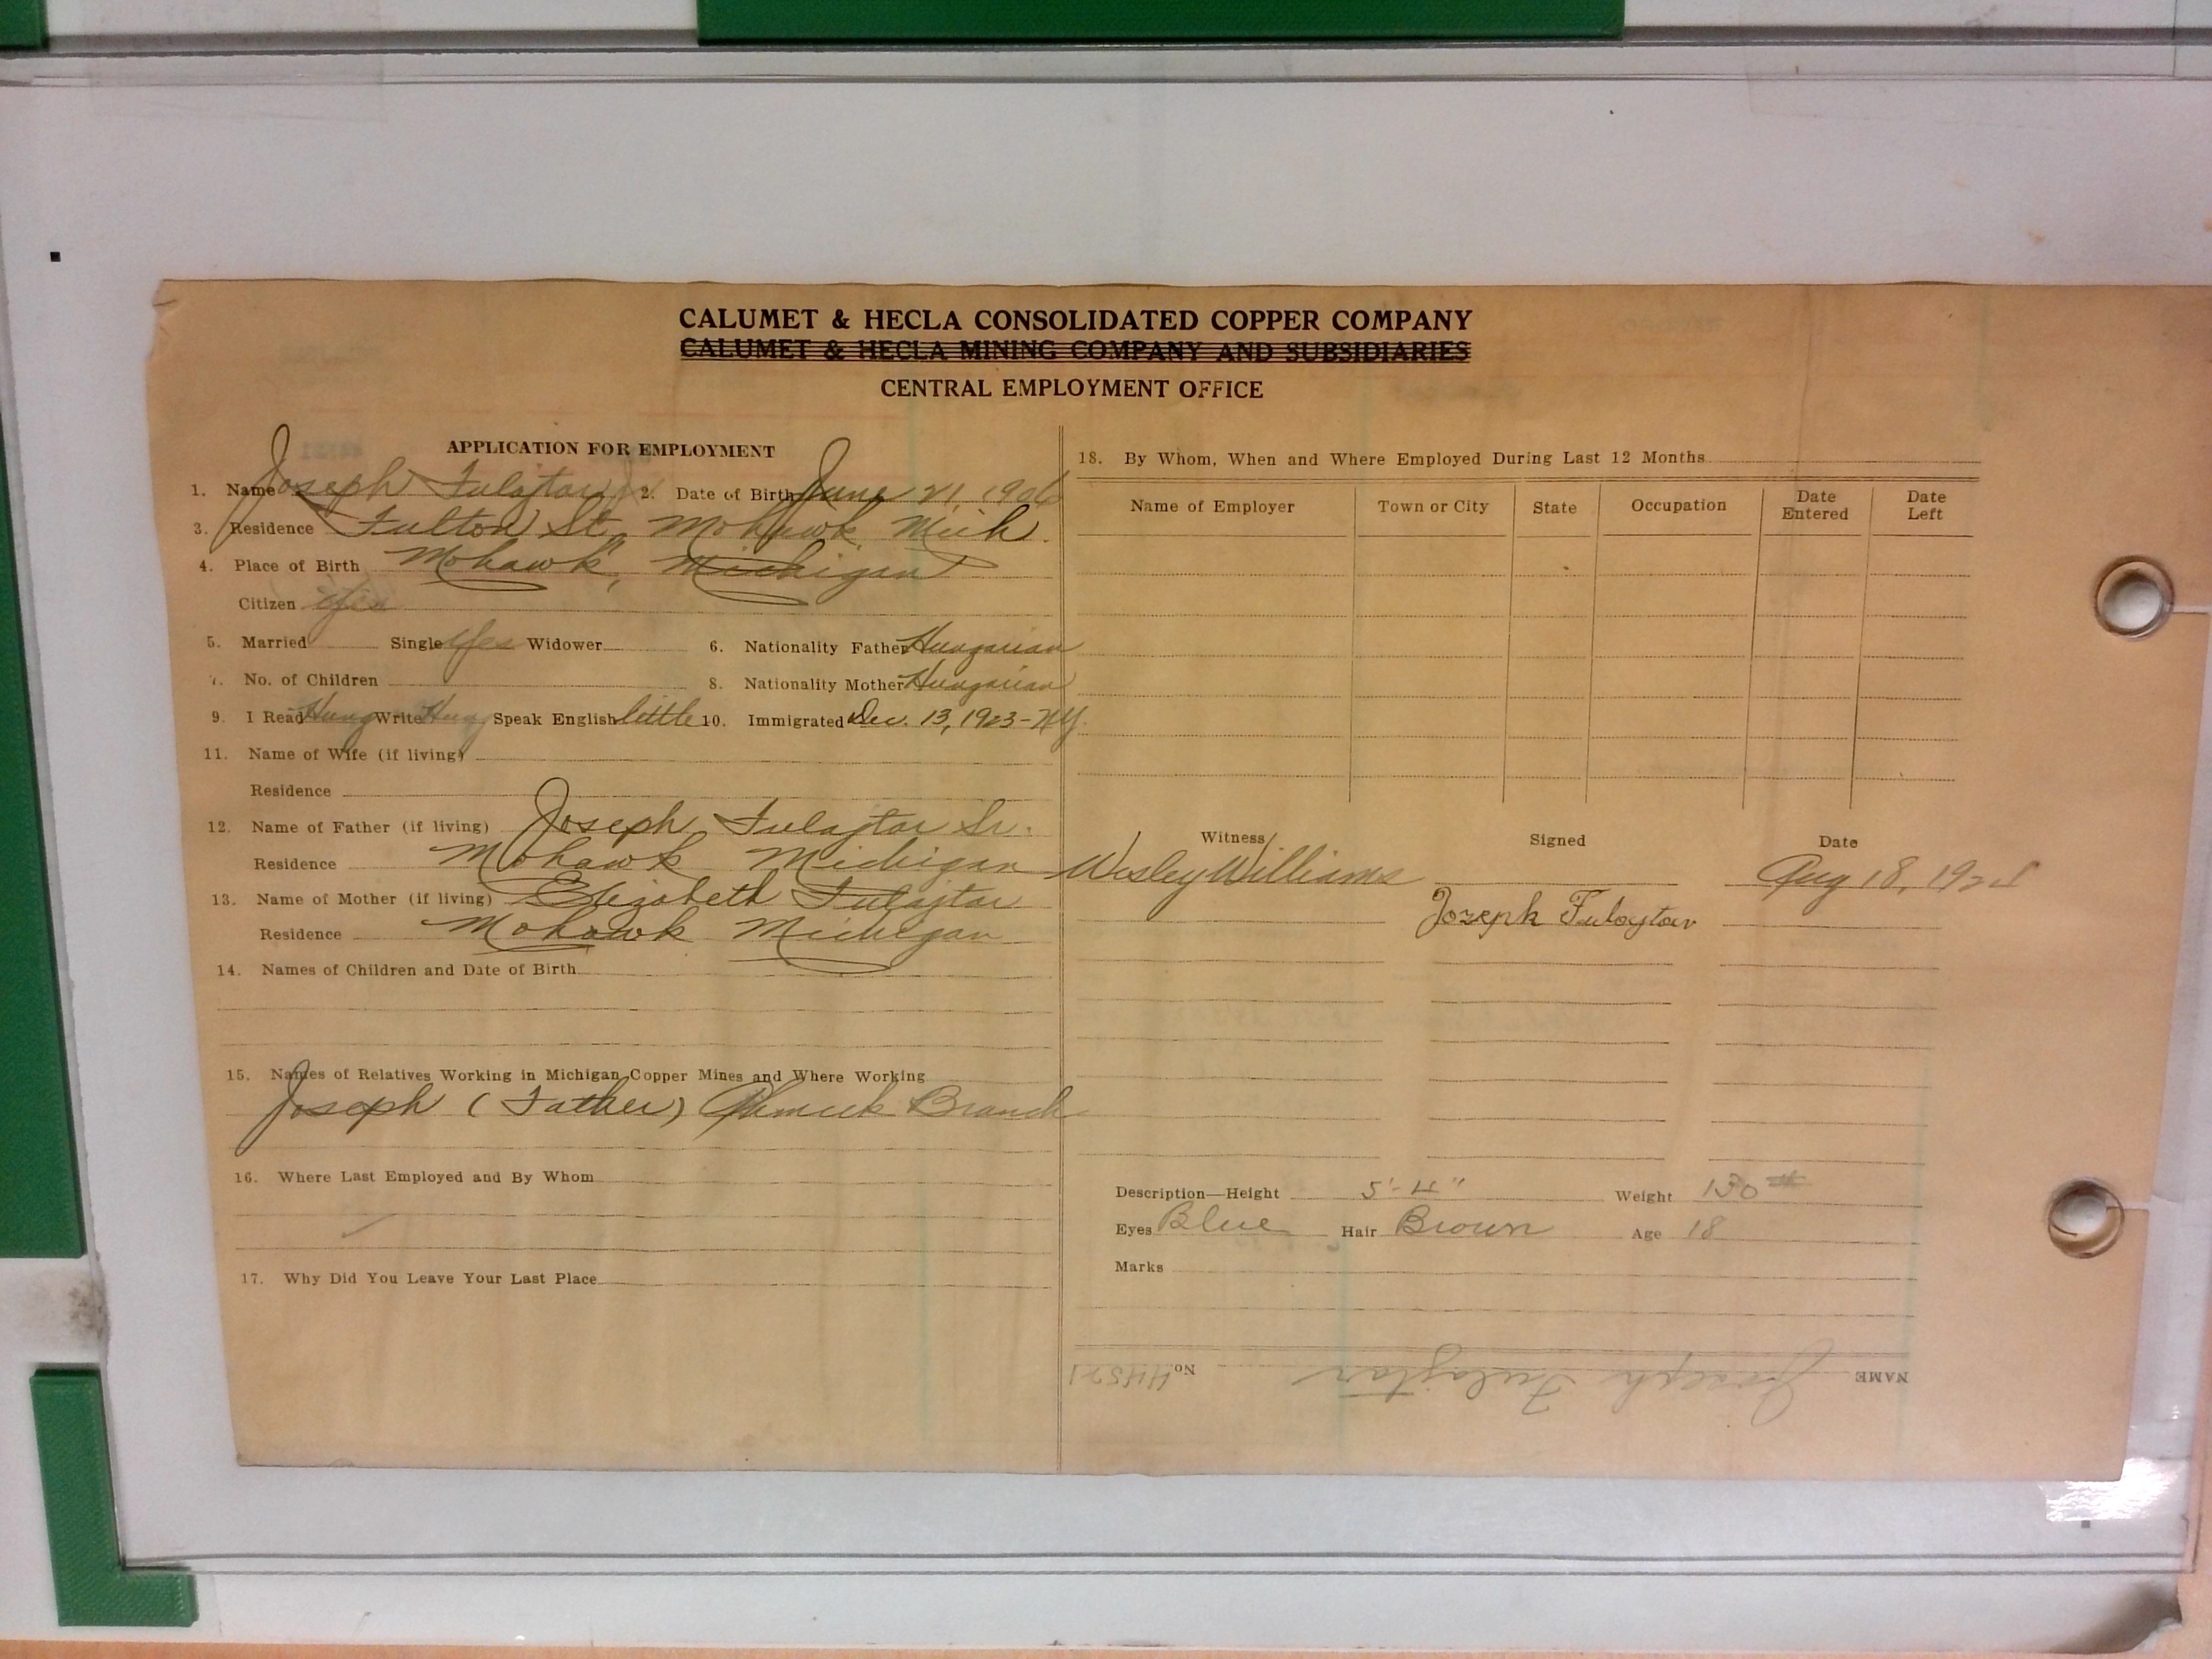 CALUMET & HECLA CONSOLIDATED COPPER COMPANY
CALUMET & HECLA MINING COMPANY AND SUBSIDIARIES
CENTRAL EMPLOYMENT OFFICE
APPLICATION FOR EMPLOYMENT
1. Name Joseph Fulajtar Jr. 2. Date of Birth June 21, 1906
3. Residence Fulton St. Mohawk, Mich.
4. Place of Birth Mohawk, Michigan
Citizen Yes
5. Married Single Yes Widower 6. Nationality Father Hungarian
7. No. of Children 8. Nationality Mother Hungarian
9. I Read Hung Write Hung Speak English little 10. Immigrated Dec. 13, 1923 - NY.
11. Name of Wife (if living)
Residence
12. Name of Father (if living) Joseph Fulajtar Sr.
Residence Mohawk Michigan
13. Name of Mother (if living) Elizabeth Fulajtar
Residence Mohawk Michigan
14. Names of Children and Date of Birth
15. Names of Relatives Working in Michigan Copper Mines and Where Working
Joseph (Father) Ahmeek Branch
16. Where Last Employed and By Whom
17. Why Did You Leave Your Last Place
18. By Whom, When and Where Employed During Last 12 Months
Name of Employer Town or City State Occupation Date Entered Date Left
Witness Signed Date
Wesley Williams Aug 18, 
Jozseph Fulajtar
Description—Height 5'-4" Weight 130 #
Eyes Blue Hair Brown Age 18
Marks
NAME Joseph Fulajtar No. 44521